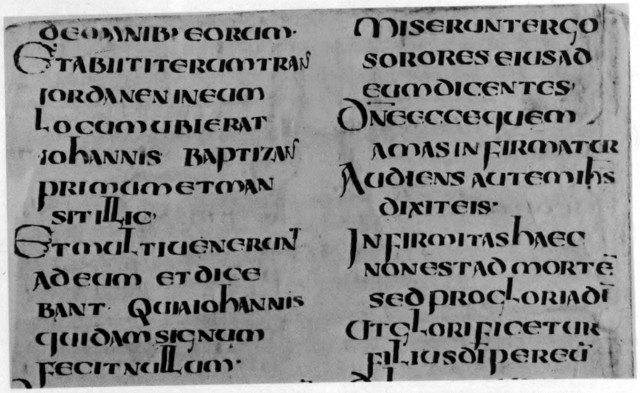 DEOMNIB; EORUM·
ETABIITITERUMTRANS
IORDANENINEUM
LOCUMUBIERAT
IOHANNIS BAPTIZANS
PRIMUMETMAN
SITILLIC·
ETMULTIUENERUNT
ADEUM ETDICE
BANT QUIAIOHANNIS
QUIDAMSIGNUM
FECITNULLUM·
MISERUNTERGO
SORORES EIUSAD
EUMDICENTES·
DNEECCEQUEM
AMASINFIRMATUR
AUDIENS AUTEMIHS
DIXITEIS·
INFIRMITASHAEC
NONESTADMORTĒ
SEDPROGLORIADĪ
UTGLORIFICETUR
FILIUSDĪPEREŪ